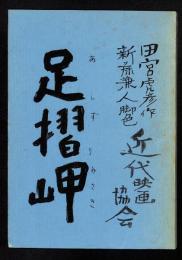 田宮虎彦作
新藤兼人脚色
近代映画
協会
足摺岬
あしずりみさき